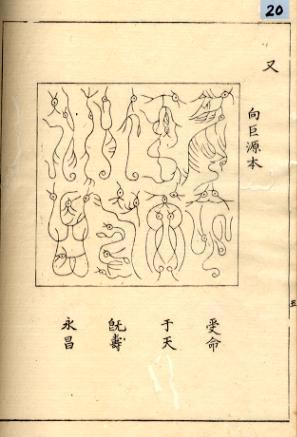 20
又
向巨源本
受命
于天
旣壽
永昌
五